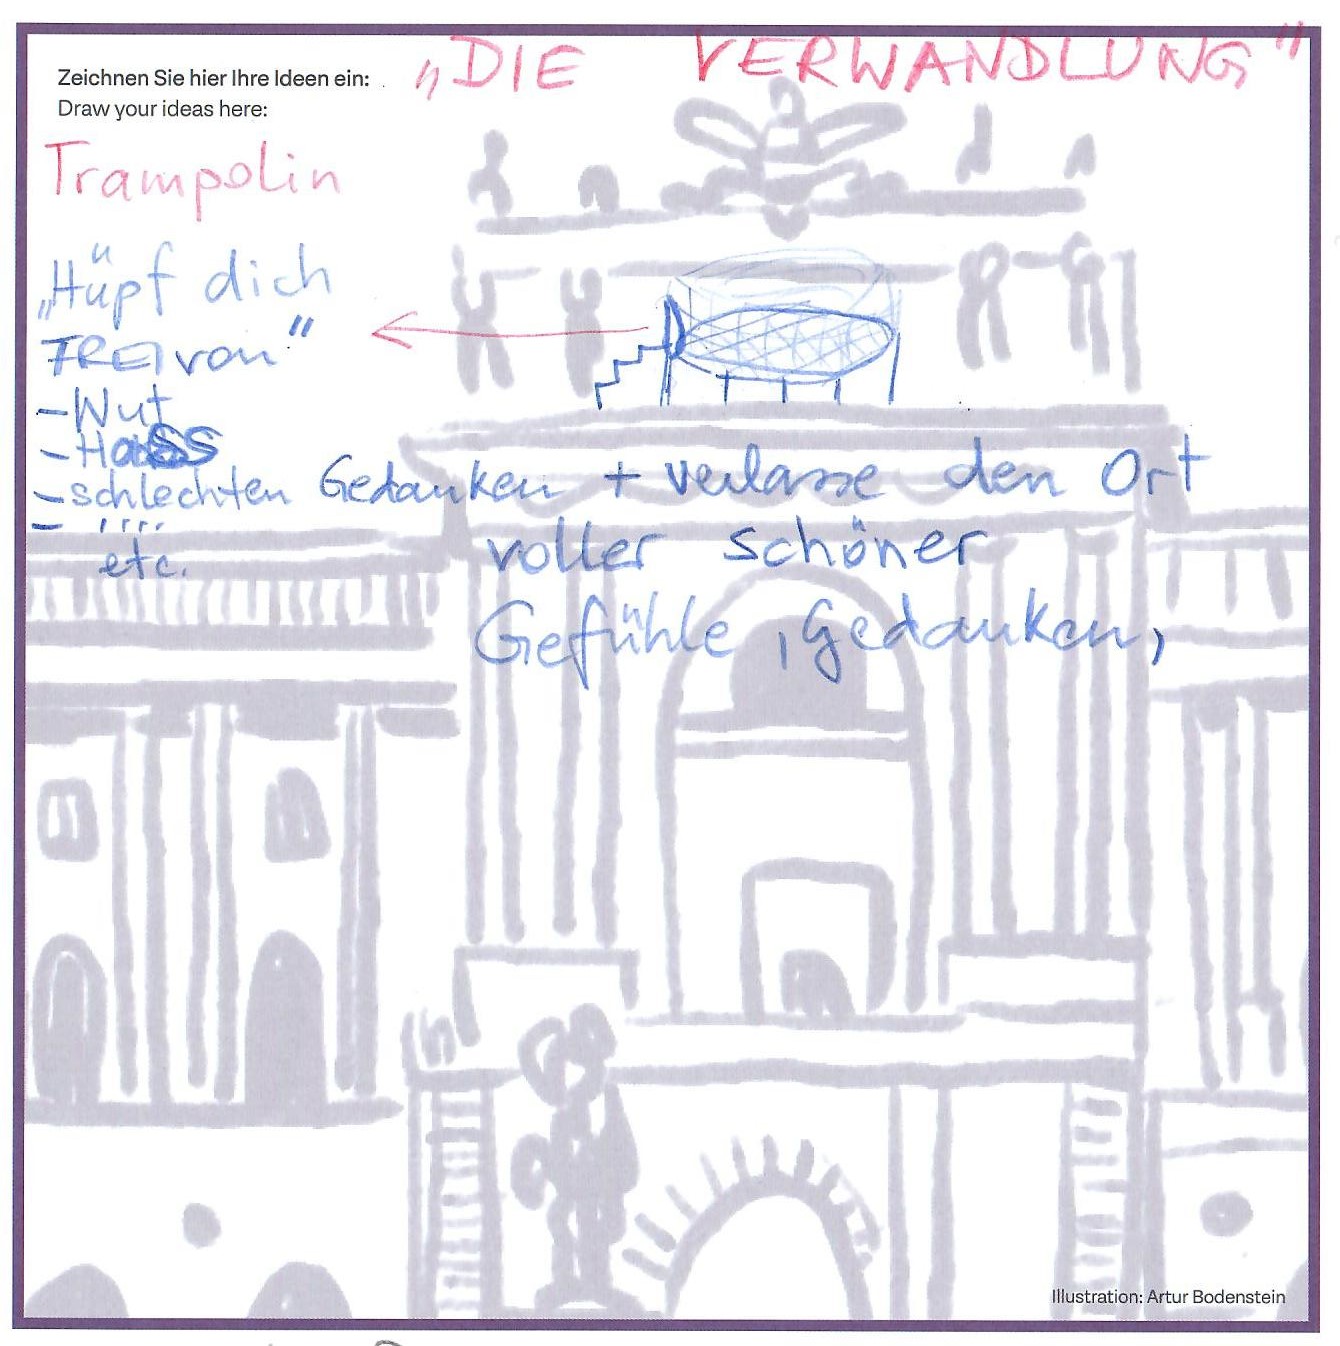 „DIE VERWANDLUNG"
Zeichnen Sie hier Ihre Ideen ein:
Draw your ideas here:
Trampolin
„Hüpf dich
FREI von"
- Wut
- Hass
- schlechten Gedanken + verlasse den Ort
- ....
voller schöner
etc.
Gefühle, Gedanken,
Illustration: Artur Bodenstein